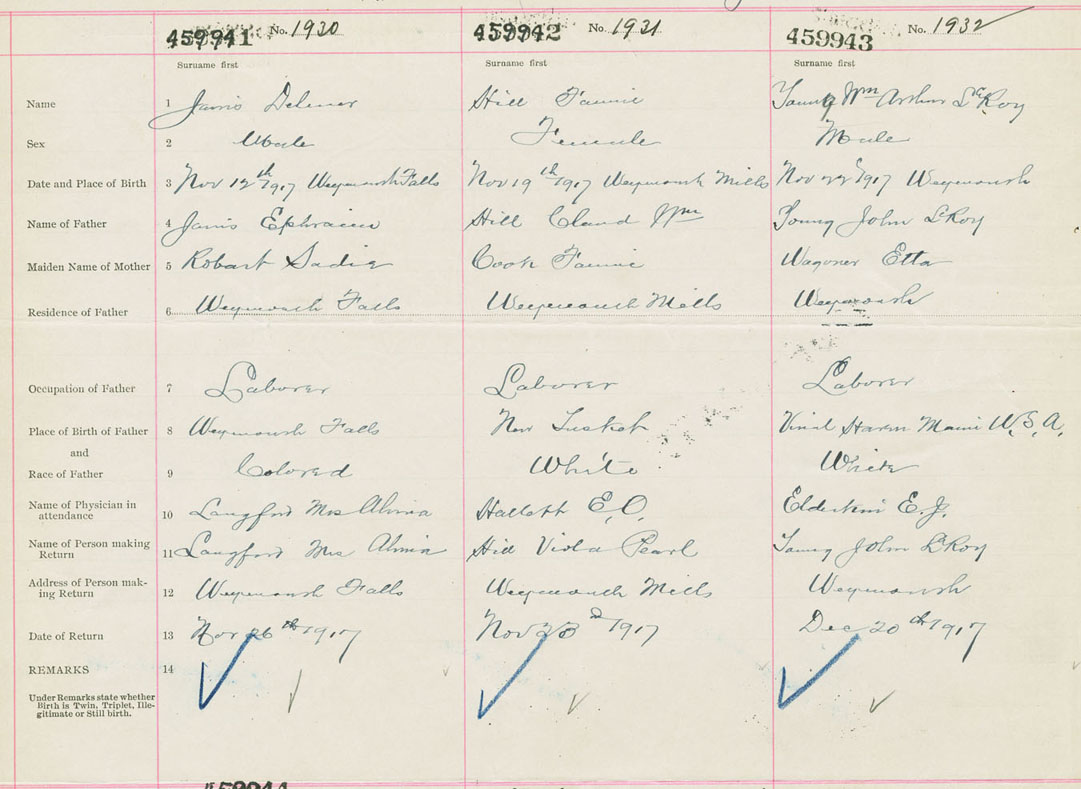 459941 No. 1930 459942 No. 1931 459943 No. 1932
Surname first Surname first Surname first
Name 1 Jarvis Delmer Hill Fannie Young Wm Arthur LeRoy
Sex 2 Male Female Male
Date and Place of Birth 3 Nov 12th 1917 Weymouth Falls Nov 19th 1917 Weymouth Mills Nov 22 1917 Weymouth
Name of Father 4 Jarvis Ephraim Hill Claud Wm Young John LeRoy
Maiden Name of Mother 5 Robart Sadie Cook Fannie Wagoner Etta
Residence of Father 6 Weymouth Falls Weymouth Mills Weymouth
Occupation of Father 7 Laborer Laborer Laborer
Place of Birth of Father 8 Weymouth Falls New Tusket Vinal Haven Maine U.S.A.
and
Race of Father 9 Colored White White
Name of Physician in
attendance 10 Langford Mrs Hallett E.O. Elderkin E.J.
Name of Person making
Return 11 Langford Mrs Hill Viola Pearl Young John LeRoy
Address of Person mak-
ing Return 12 Weymouth Falls Weymouth Mills Weymouth
Date of Return 13 Nov 26th 1917 Nov 23d 1917 Dec 20th 1917
REMARKS 14
Under Remarks state whether
Birth is Twin, Triplet, Ille-
gitimate or Still birth.